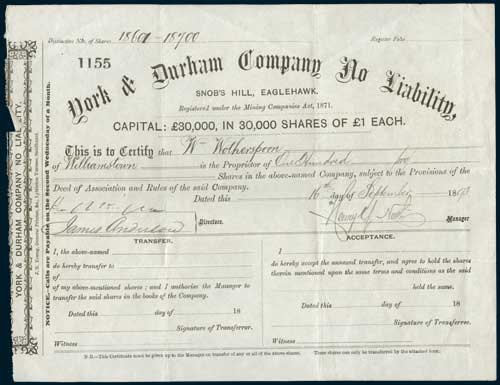 Distinctive Nos. of Shares 18601 - 18700 Register Folio
1155
York & Durham Company No Liability,
SNOB'S HILL, EAGLEHAWK.
Registered under the Mining Companies Act, 1871.
CAPITAL: £30,000, IN 30,000 SHARES OF £1 EACH.
This is to Certify that Wm Wotherspoon
of Williamstown is the Proprietor of One Hundred
Shares in the above-named Company, subject to the Provisions of the
Deed of Association and Rules of the said Company.
Dated this 16th day of September 18
James Anderson Directors. Manager
TRANSFER.
I, the above-named
do hereby transfer to
of
my above-mentioned shares; and I authorise the Manager to
transfer the said shares in the books of the Company.
Dated this day of 18
Signature of Transferror.
Witness
ACCEPTANCE.
I
do hereby accept the annexed transfer, and agree to hold the shares
therein mentioned upon the same terms and conditions as the said
held the same.
Dated this day of 18
Signature of Transferree.
Witness
N.B.—This Certificate must be given up to the Manager on transfer of any or all of the above shares. These shares can only be transferred by the attached form.
YORK & DURHAM COMPANY NO LIABILITY.
NOTICE.—Calls are Payable on the Second Wednesday of a Month.